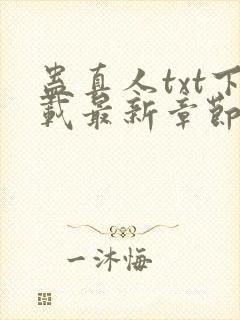 蛊真人txt下
载最新章节
一沐悔